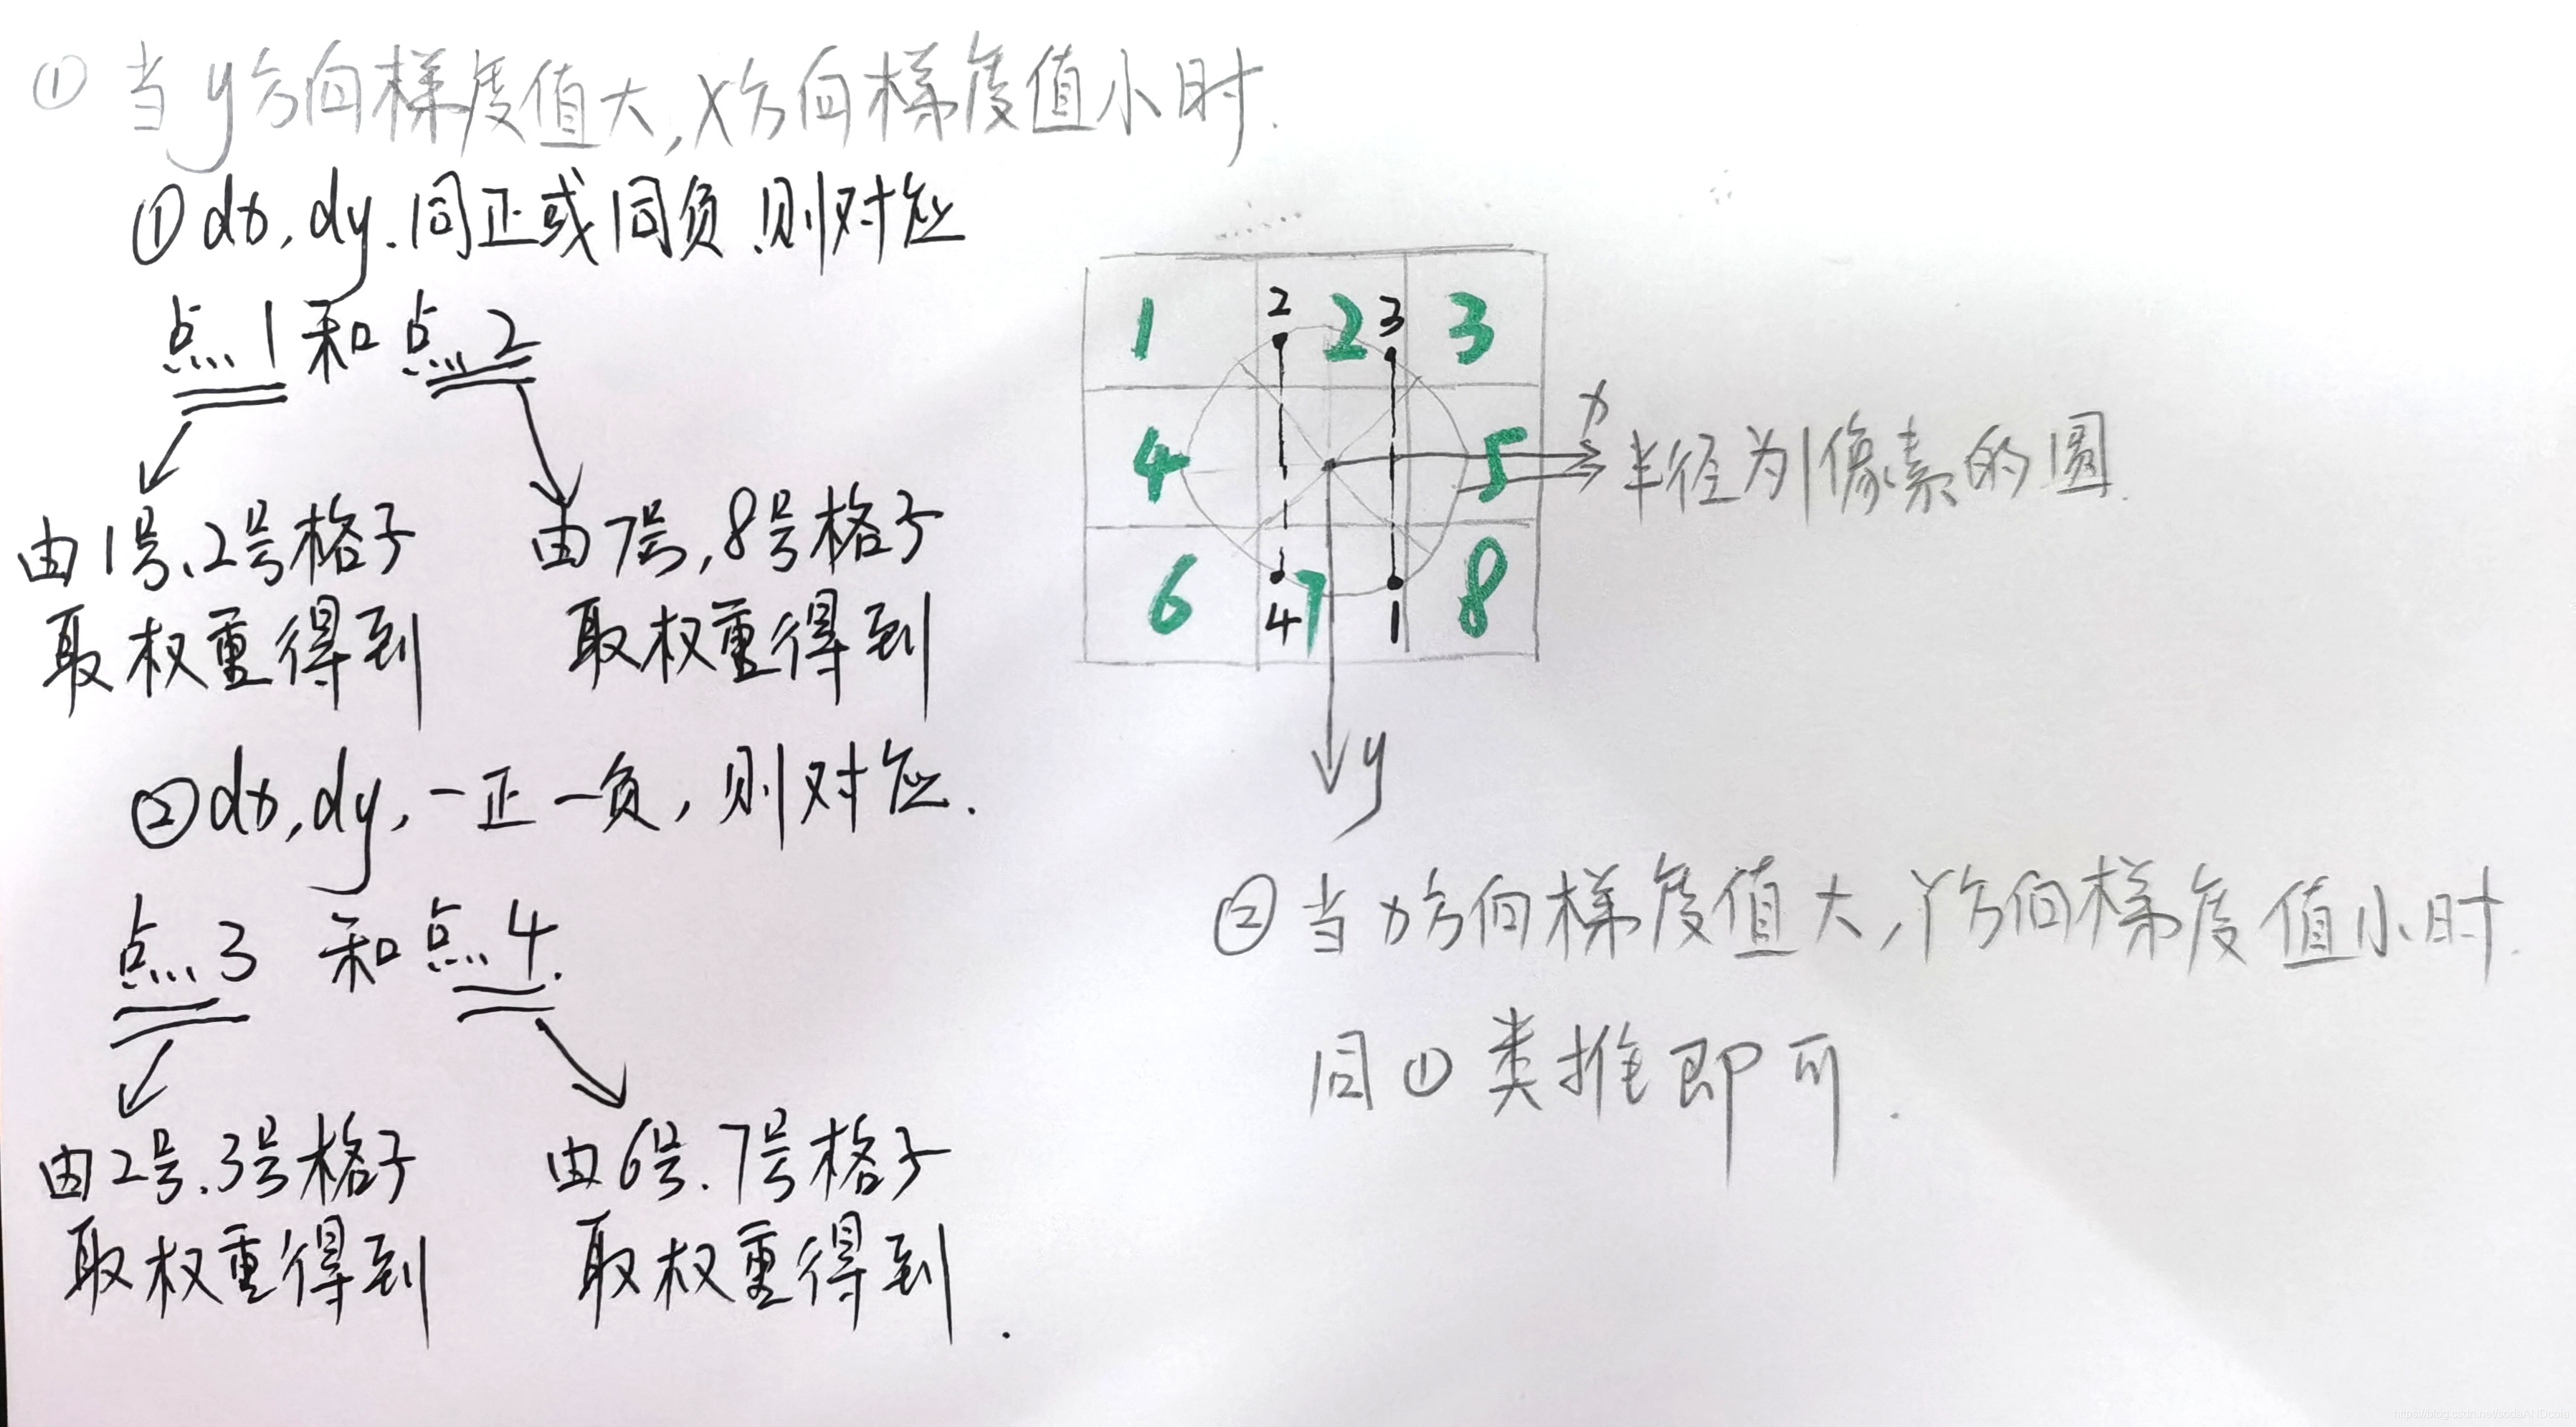 ① 当y方向梯度值大,X方向梯度值小时.
①dx,dy.同正或同负.则对应
点1和点2
由1号、2号格子
取权重得到
由7号,8号格子
取权重得到
②dx,dy,一正一负,则对应.
点3 和点4.
由2号.3号格子
取权重得到
由6号.7号格子
取权重得到.
1 2 2 3 3
4 5
6 4 7 1 8
x
半径为1像素的圆.
y
②当x方向梯度值大,Y方向梯度值小时.
同①类推即可.